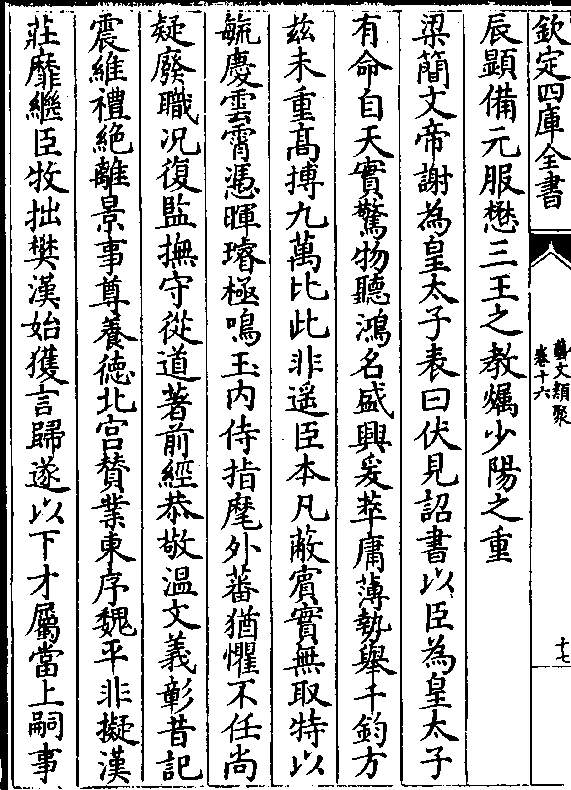 欽定四庫全書
藝文類聚
卷十六
十七
辰顕備元服懋三王之教爥少陽之重
梁簡文帝謝為皇太子表曰伏見詔書以臣為皇太子
有命自天實驚物聽鴻名盛興爰萃庸薄勢舉千鈞方
兹未重髙摶九萬比此非遥臣本凡蔽賓實無取特以
毓慶雲霄憑暉璿極鳴玉内侍指麾外蕃猶懼不任尚
疑廢職况復監撫守從道著前經恭敬温文義彰昔記
震維禮絶離景事尊養徳北宫賛業東序魏平非擬漢
莊靡繼臣牧拙樊漢始獲言歸遂以下才屬當上嗣事